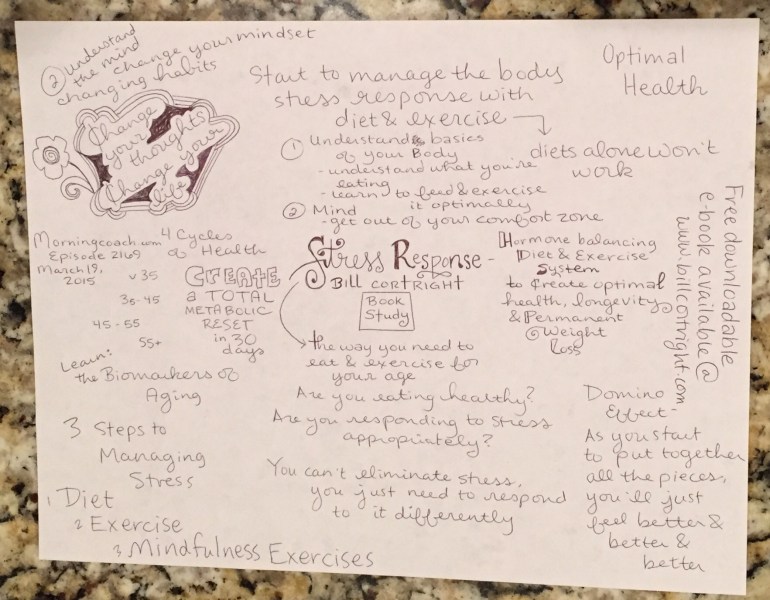 ② understand
the mind
change your mindset
changing habits
Change
your
thoughts
Change your
life
Start to manage the body
stress response with
diet & exercise
diets alone won't
work
Optimal
Health
① Understand basics
of your Body
- understand what you're
eating
- learn to feed & exercise
it optimally
② Mind
- get out of your comfort zone
Morningcoach.com
Episode 2169
March 19,
2015
4 Cycles
of Health
v 35
35-45
45-55
55+
CREATE
a TOTAL
METABOLIC
RESET
in 30
days
Stress Response -
BILL CORTRIGHT
Book
Study
Hormone balancing
Diet & Exercise
System
to create optimal
health, longevity
& Permanent
Weight
Loss
Free downloadable
e-book available @
www.billcortright.com
the way you need to
eat & exercise for
your age
Learn:
the Biomarkers of
Aging
Are you eating healthy?
Are you responding to stress
appropriately?
You can't eliminate stress,
you just need to respond
to it differently
Domino
Effect -
As you start
to put together
all the pieces,
you'll just
feel better &
better &
better
3 Steps to
Managing
Stress
1 Diet
2 Exercise
3 Mindfulness Exercises